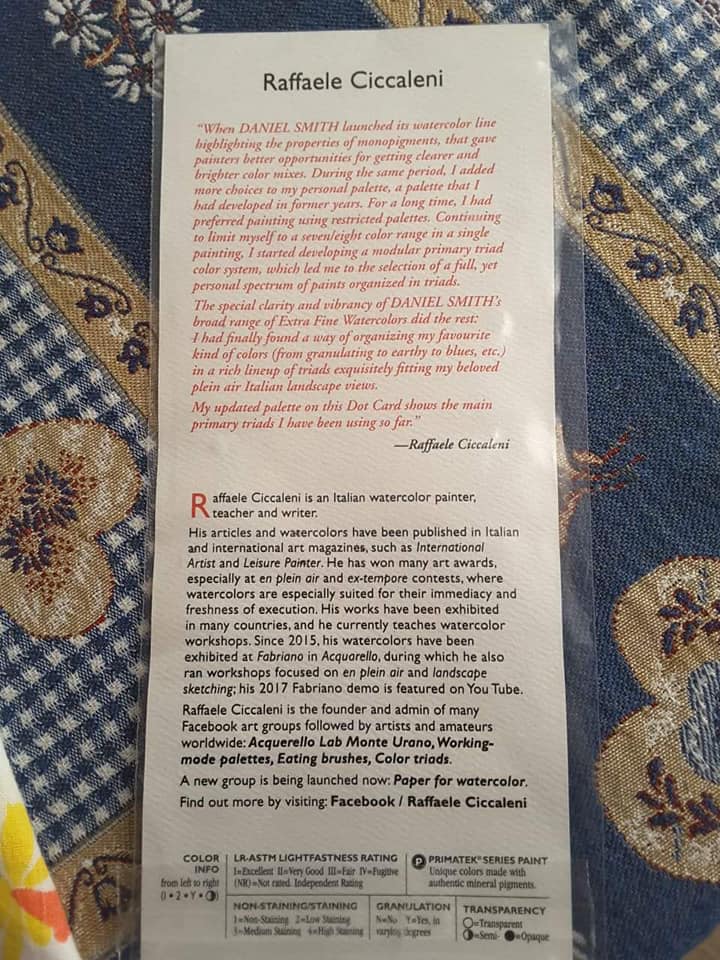 Raffaele Ciccaleni
"When DANIEL SMITH launched its watercolor line
highlighting the properties of monopigments, that gave
painters better opportunities for getting clearer and
brighter color mixes. During the same period, I added
more choices to my personal palette, a palette that I
had developed in former years. For a long time, I had
preferred painting using restricted palettes. Continuing
to limit myself to a seven/eight color range in a single
painting, I started developing a modular primary triad
color system, which led me to the selection of a full, yet
personal spectrum of paints organized in triads.
The special clarity and vibrancy of DANIEL SMITH's
broad range of Extra Fine Watercolors did the rest:
I had finally found a way of organizing my favourite
kind of colors (from granulating to earthy to blues, etc.)
in a rich lineup of triads exquisitely fitting my beloved
plein air Italian landscape views.
My updated palette on this Dot Card shows the main
primary triads I have been using so far."
—Raffaele Ciccaleni
Raffaele Ciccaleni is an Italian watercolor painter,
teacher and writer.
His articles and watercolors have been published in Italian
and international art magazines, such as International
Artist and Leisure Painter. He has won many art awards,
especially at en plein air and ex-tempore contests, where
watercolors are especially suited for their immediacy and
freshness of execution. His works have been exhibited
in many countries, and he currently teaches watercolor
workshops. Since 2015, his watercolors have been
exhibited at Fabriano in Acquarello, during which he also
ran workshops focused on en plein air and landscape
sketching; his 2017 Fabriano demo is featured on You Tube.
Raffaele Ciccaleni is the founder and admin of many
Facebook art groups followed by artists and amateurs
worldwide: Acquerello Lab Monte Urano, Working-
mode palettes, Eating brushes, Color triads.
A new group is being launched now: Paper for watercolor.
Find out more by visiting: Facebook / Raffaele Ciccaleni
COLOR
INFO
from left to right
(I • 2 • Y • ◑)
LR-ASTM LIGHTFASTNESS RATING
I=Excellent II=Very Good III=Fair IV=Fugitive
(NR)=Not rated. Independent Rating
P PRIMATEK® SERIES PAINT
Unique colors made with
authentic mineral pigments.
NON-STAINING/STAINING
1=Non-Staining 2=Low Staining
3=Medium Staining 4=High Staining
GRANULATION
N=No Y=Yes, in
varying degrees
TRANSPARENCY
○=Transparent
◑=Semi- ●=Opaque